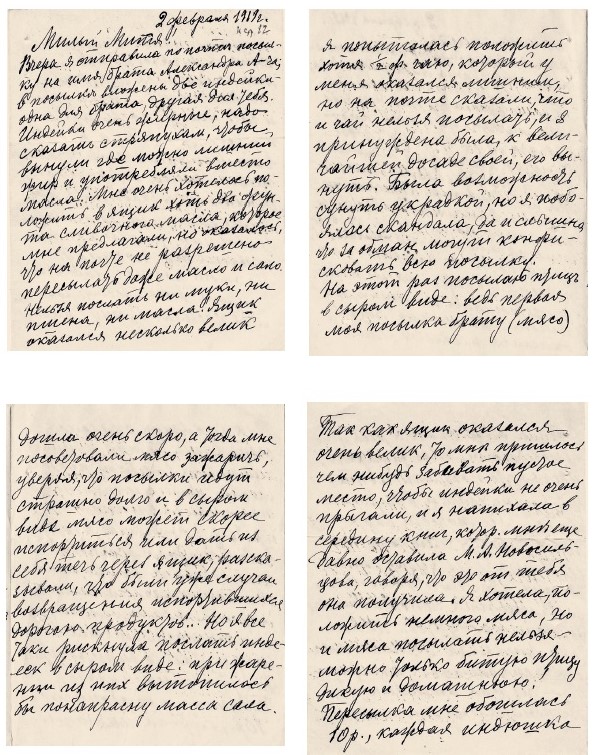 2 февраля 1919г.
Милый Митя!
Вчера я отправила по почте посыл-
ку на имя брата Александра А-ча,
в посылке вложены две индейки
одна для брата, другая для тебя.
Индейки очень жирные, надо
сказать стряпухам, чтобы
вынули где можно лишний
жир и употребляли вместо
масла. Мне очень хотелось по-
ложить в ящик хоть два фун-
та сливочного масла, которое
мне предлагали, но оказалось,
что на почте не разрешено
пересылать даже масло и сало.
Нельзя послать ни муки, ни
пшена, ни масла. Ящик
оказался несколько велик
я попыталась положить
хотя ½ ф. чаю, который у
меня оказался лишним,
но на почте сказали, что
и чай нельзя посылать, и я
принуждена была, к вели-
чайшей досаде своей, его вы-
нуть. Была возможность
сунуть украдкой, но я побо-
ялась скандала, да и слышала
что за обман могут конфи-
сковать всю посылку.
На этот раз посылаю птицу
в сыром виде: ведь первая
моя посылка брату (мясо)
дошла очень скоро, а тогда мне
посоветовали мясо зажарить,
уверяя, что посылки идут
страшно долго и в сыром
виде мясо может скорее
испортиться или дать из
себя течь через ящик, расска-
зывали, что были уже случаи
возвращения испортившихся
дорогою продуктов. Но я все
таки рискнула послать инде-
ек в сыром виде: при жаре-
нии из них вытопилось
бы понапрасну масса сала.
Так как ящик оказался
очень велик, то мне пришлось
чем нибудь забивать пустое
место, чтобы индейки не очень
прыгали, и я напихала в
середину книг, котор. мне еще
давно оставила М. А. Новосиль-
цова, говоря, что это от тебя
она получила. Я хотела по-
ложить немного мяса, но
и мяса посылать нельзя –
можно только битую птицу
дикую и домашнюю.
Пересылка мне обошлась
10 р., каждая индюшка